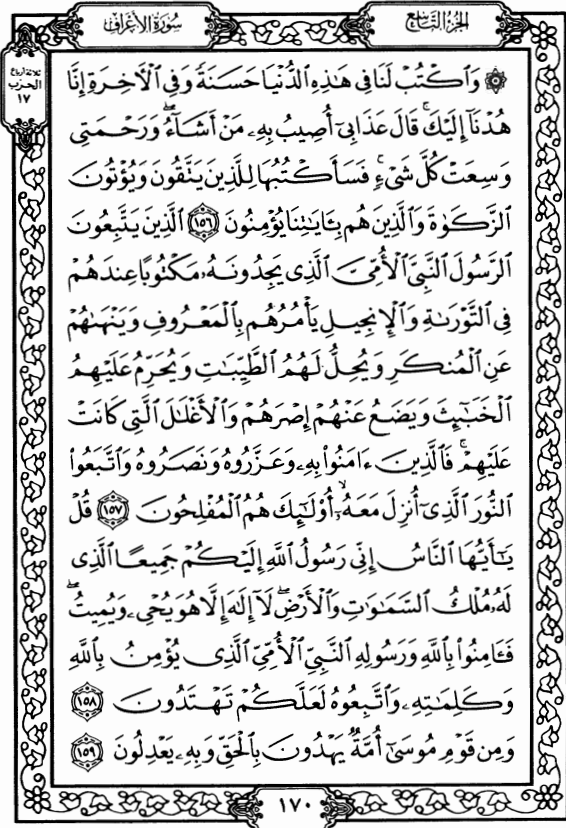 الجزء التاسع
سورة الأعراف
ثلاثة أرباع
الحزب
١٧
۞ وَٱكْتُبْ لَنَا فِى هَٰذِهِ ٱلدُّنْيَا حَسَنَةً وَفِى ٱلْأَخِرَةِ إِنَّا
هُدْنَآ إِلَيْكَ ۚ قَالَ عَذَابِىٓ أُصِيبُ بِهِۦ مَنْ أَشَآءُ ۖ وَرَحْمَتِى
وَسِعَتْ كُلَّ شَىْءٍ ۚ فَسَأَكْتُبُهَا لِلَّذِينَ يَتَّقُونَ وَيُؤْتُونَ
ٱلزَّكَوٰةَ وَٱلَّذِينَ هُم بِـَٔايَٰتِنَا يُؤْمِنُونَ ١٥٦ ٱلَّذِينَ يَتَّبِعُونَ
ٱلرَّسُولَ ٱلنَّبِىَّ ٱلْأُمِّىَّ ٱلَّذِى يَجِدُونَهُۥ مَكْتُوبًا عِندَهُمْ
فِى ٱلتَّوْرَىٰةِ وَٱلْإِنجِيلِ يَأْمُرُهُم بِٱلْمَعْرُوفِ وَيَنْهَىٰهُمْ
عَنِ ٱلْمُنكَرِ وَيُحِلُّ لَهُمُ ٱلطَّيِّبَٰتِ وَيُحَرِّمُ عَلَيْهِمُ
ٱلْخَبَٰٓئِثَ وَيَضَعُ عَنْهُمْ إِصْرَهُمْ وَٱلْأَغْلَٰلَ ٱلَّتِى كَانَتْ
عَلَيْهِمْ ۚ فَٱلَّذِينَ ءَامَنُوا۟ بِهِۦ وَعَزَّرُوهُ وَنَصَرُوهُ وَٱتَّبَعُوا۟
ٱلنُّورَ ٱلَّذِىٓ أُنزِلَ مَعَهُۥٓ ۙ أُو۟لَٰٓئِكَ هُمُ ٱلْمُفْلِحُونَ ١٥٧ قُلْ
يَٰٓأَيُّهَا ٱلنَّاسُ إِنِّى رَسُولُ ٱللَّهِ إِلَيْكُمْ جَمِيعًا ٱلَّذِى
لَهُۥ مُلْكُ ٱلسَّمَٰوَٰتِ وَٱلْأَرْضِ ۖ لَآ إِلَٰهَ إِلَّا هُوَ يُحْىِۦ وَيُمِيتُ ۖ
فَـَٔامِنُوا۟ بِٱللَّهِ وَرَسُولِهِ ٱلنَّبِىِّ ٱلْأُمِّىِّ ٱلَّذِى يُؤْمِنُ بِٱللَّهِ
وَكَلِمَٰتِهِۦ وَٱتَّبِعُوهُ لَعَلَّكُمْ تَهْتَدُونَ ١٥٨
وَمِن قَوْمِ مُوسَىٰٓ أُمَّةٌ يَهْدُونَ بِٱلْحَقِّ وَبِهِۦ يَعْدِلُونَ ١٥٩
١٧٠